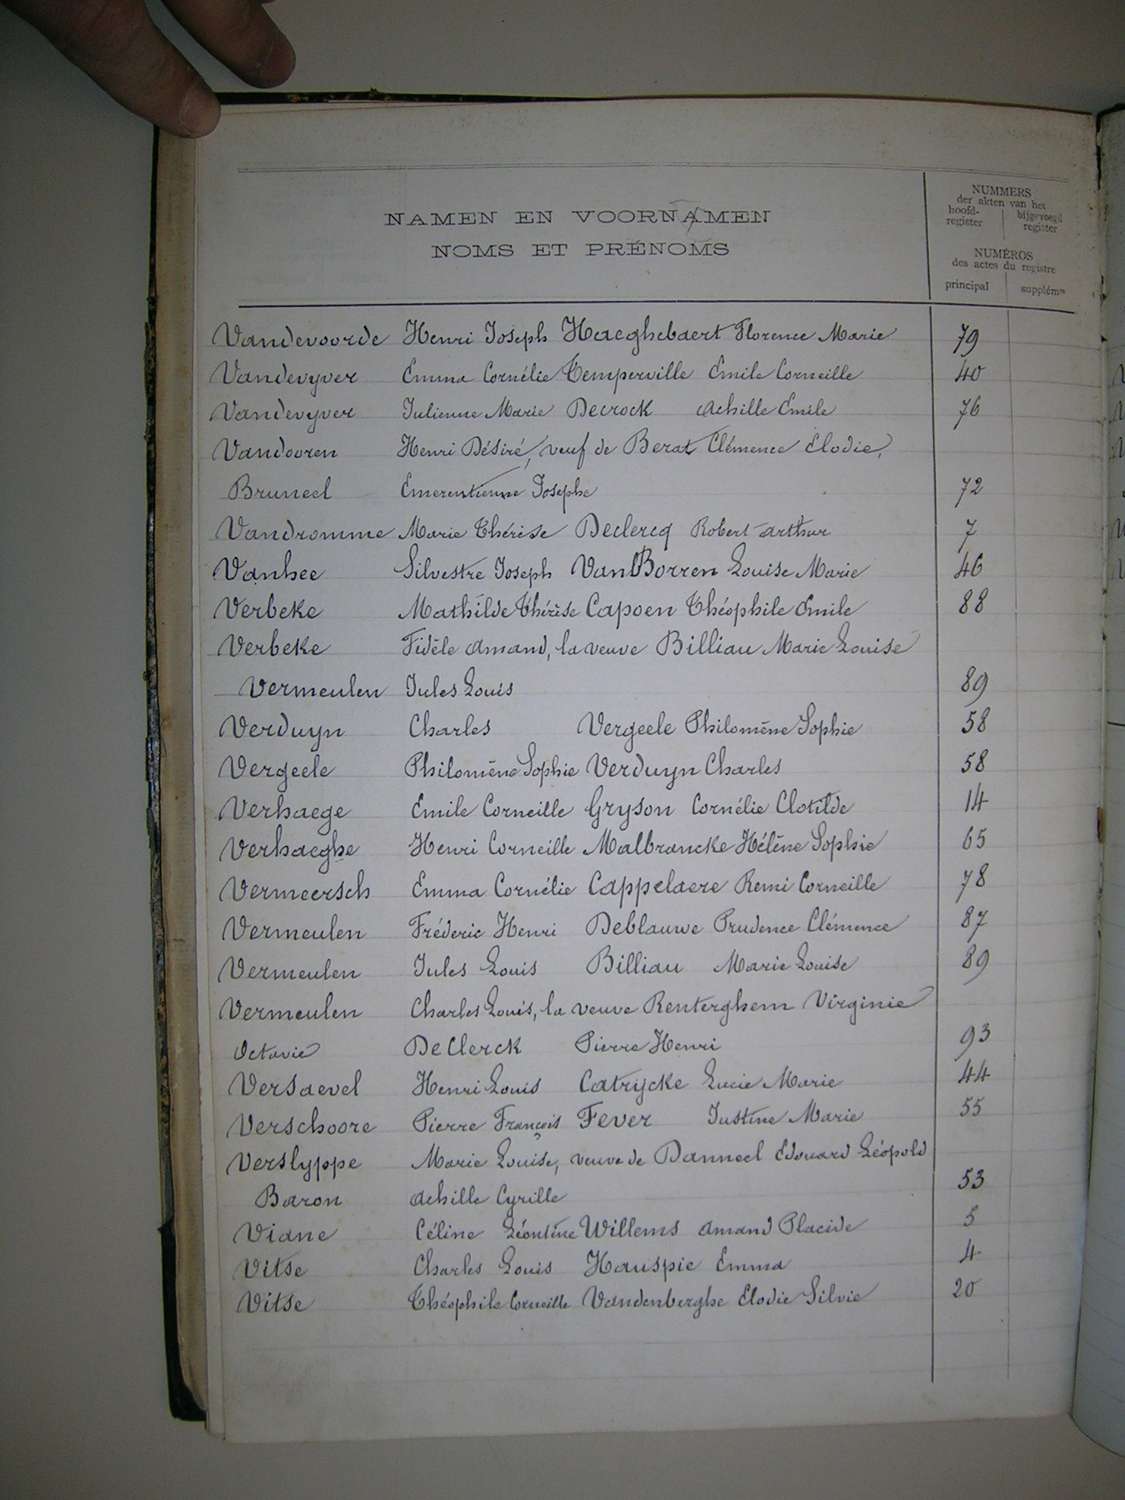 NAMEN EN VOORNAMEN
NOMS ET PRÉNOMS
NUMMERS
der akten van het
hoofd-register
bijgevoegd register
NUMÉROS
des actes du registre
principal
supplémre
Vandevoorde Henri Joseph Haeghebaert Florence Marie 79
Vandevyver Emma Cornélie Temperville Emile Corneille 40
Vandevyver Julienne Marie Decrock Achille Emile 76
Vandooren Henri Désiré, veuf de Berat Clémence Elodie,
Bruneel Emerentienne Josephe 72
Vandromme Marie Thérèse Declercq Robert Arthur 7
Vanhee Silvestre Joseph VanBorren Louise Marie 46
Verbeke Mathilde Thérèse Capoen Théophile Emile 88
Verbeke Fidèle Amand, la veuve Billiau Marie Louise
Vermeulen Jules Louis 89
Verduyn Charles Vergeele Philomène Sophie 58
Vergeele Philomène Sophie Verduyn Charles 58
Verhaege Emile Corneille Gryson Cornélie Clotilde 14
Verhaeghe Henri Corneille Malbrancke Hélène Sophie 65
Vermeersch Emma Cornélie Cappelaere Remi Corneille 78
Vermeulen Fréderic Henri Deblauwe Prudence Clémence 87
Vermeulen Jules Louis Billiau Marie Louise 89
Vermeulen Charles Louis, la veuve Renterghem Virginie
Octavie DeClerck Pierre Henri 93
Versaevel Henri Louis Catrycke Lucie Marie 44
Verschoore Pierre François Fever Justine Marie 55
Verslyppe Marie Louise, veuve de Danneel Edouard Léopold
Baron Achille Cyrille 53
Viane Céline Léontine Willems Amand Placide 5
Vitse Charles Louis Hauspie Emma 4
Vitse Théophile Corneille Vandenberghe Elodie Silvie 20